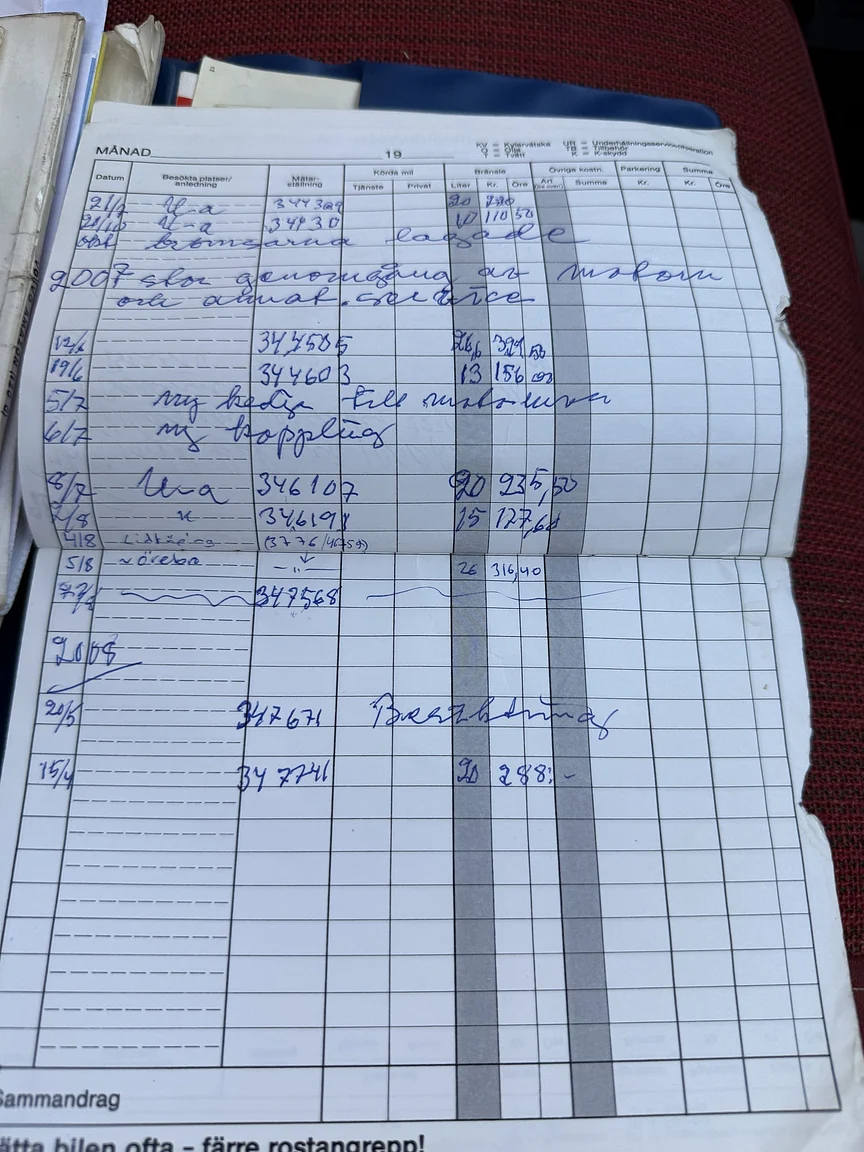 MÅNAD 19
KV = Kylarvätska UH = Underhållningsservice/reparation
O = Olja TB = Tillbehör
T = Tvätt K = K-skydd
Datum Besökta platser/anledning Mätarställning Körda mil Bränsle Övriga kostn. Parkering Summa
Tjänste Privat Liter Kr. Öre Art Summa Kr. Kr. Öre
21/7 U-a 20
U-a 10 110 50
bromsarna lagade
2007 stor genomgång av motorn
och annat. service
12/6 344505 50
19/6 344603 13 156 00
5/7 ny kedja till motorn
6/7 ny koppling
8/7 U-a 346107 20 235,50
346191 15 127,60
4/8 Lidköping
5/8 Örebro -"- 26 316,40
347568
2008
20/5 347671 Besiktning
15/4 347741 20 288:-
Sammandrag
tta bilen ofta – färre rostangrepp!